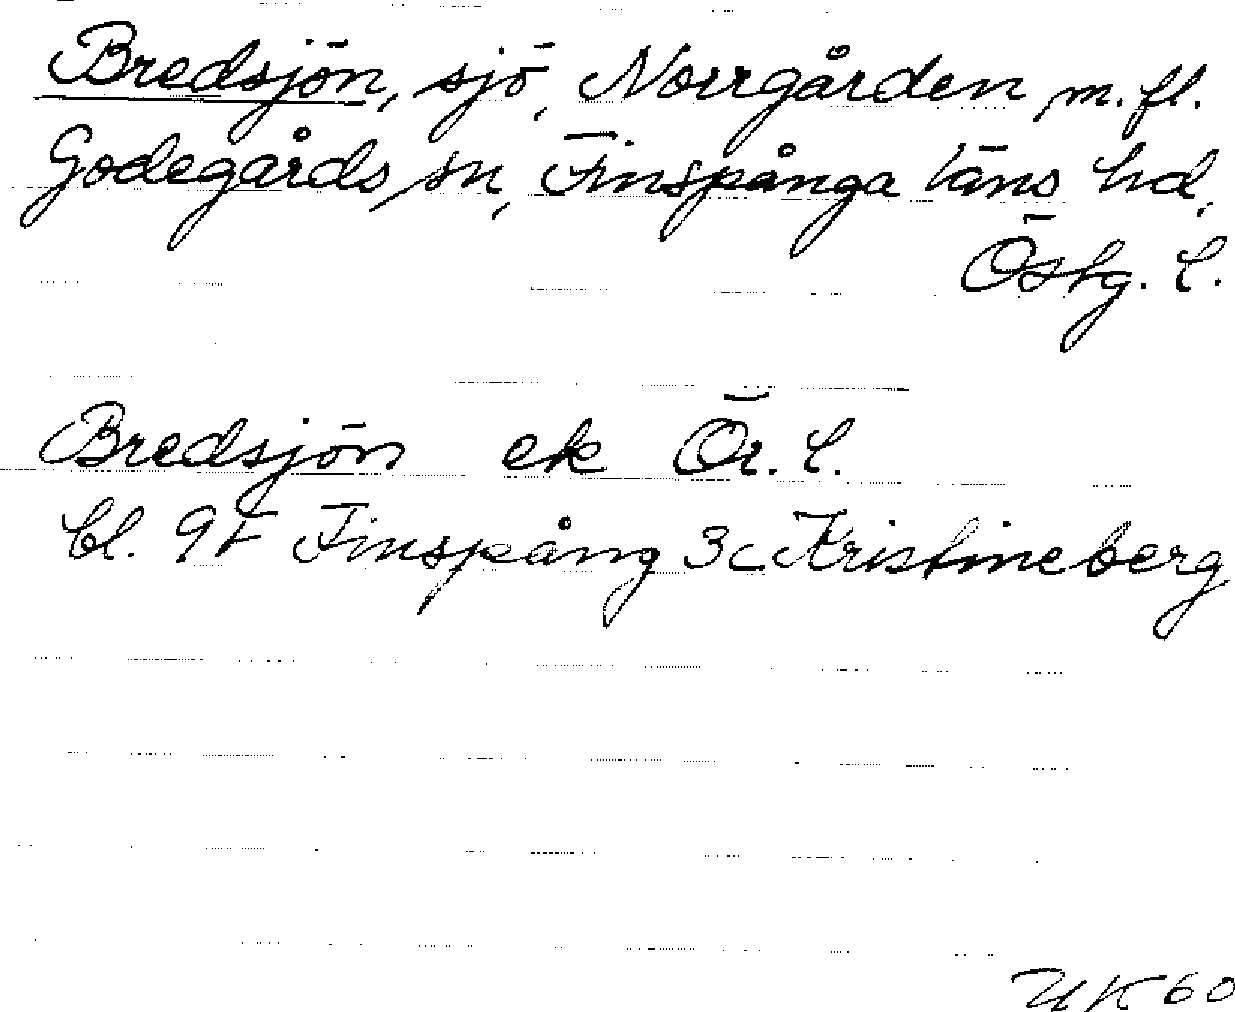 Bredsjön, sjö, Norrgården m.fl.
Godegårds sn, Finspånga läns hd,
Östg. l.
Bredsjön ek Ör. l.
bl. 9F Finspång 3c Kristineberg
UK 60